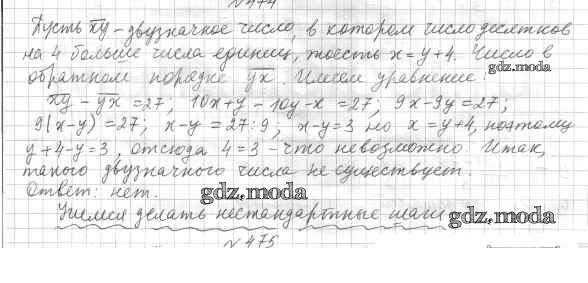 №474
Пусть xy - двузначное число, в котором число десятков
на 4 больше числа единиц, то есть x = y + 4. Число в
gdz.moda
обратном порядке yx. Имеем уравнение:
xy - yx = 27; 10x + y - 10y - x = 27; 9x - 9y = 27;
9(x - y) = 27; x - y = 27 : 9; x - y = 3 но x = y + 4, поэтому
y + 4 - y = 3, отсюда 4 = 3 - что невозможно. Итак,
такого двузначного числа не существует.
Ответ: нет.
gdz.moda
Учимся делать нестандартные шаги
gdz.moda
№475